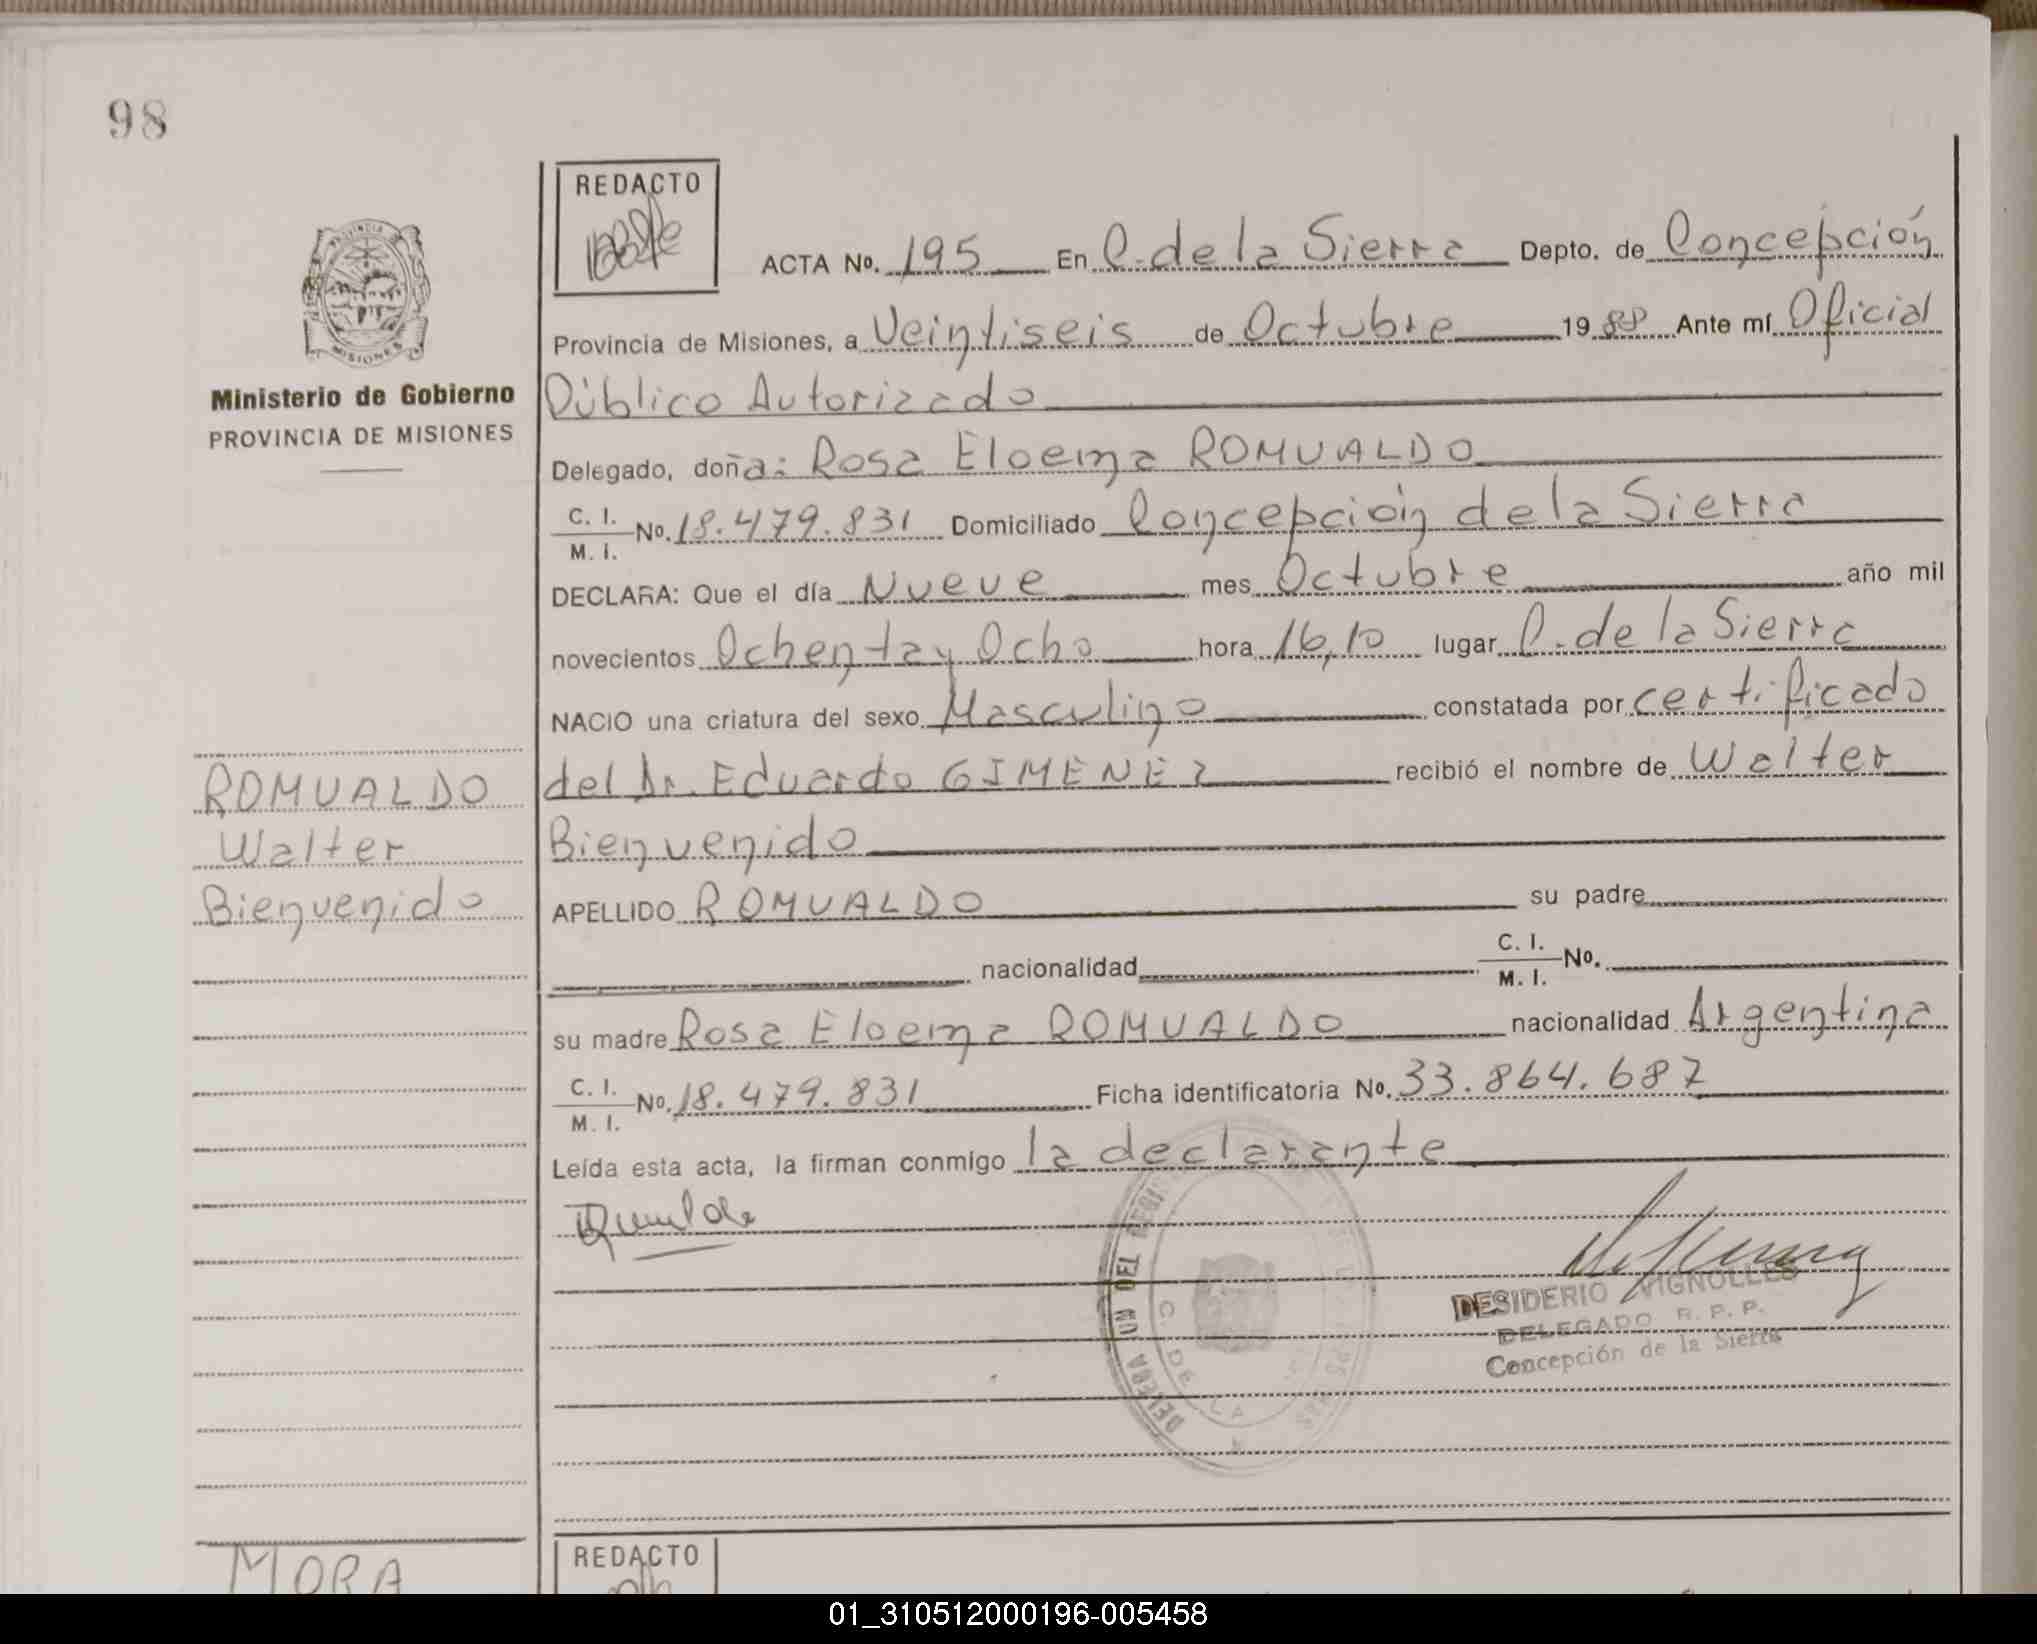 98
REDACTO
ACTA No. 195 En C. de la Sierra Depto. de Concepción
Provincia de Misiones, a Veintiseis de Octubre 1988 Ante mí Oficial
Público Autorizado
Delegado, doña: Rosa Eloema ROMUALDO
C. I. M. I. No. 18.479.831 Domiciliado Concepción de la Sierra
DECLARA: Que el día Nueve mes Octubre año mil
novecientos Ochenta y Ocho hora 16,10 lugar C. de la Sierra
NACIO una criatura del sexo Masculino constatada por certificado
del Dr. Eduardo GIMENEZ recibió el nombre de Walter
Bienvenido
APELLIDO ROMUALDO su padre
nacionalidad C. I. M. I. No.
su madre Rosa Eloema ROMUALDO nacionalidad Argentina
C. I. M. I. No. 18.479.831 Ficha identificatoria No. 33.864.687
Leída esta acta, la firman conmigo la declarante
DESIDERIO VIGNOLLES
DELEGADO R. P. P.
Concepción de la Sierra
C. DE LA
PROVINCIA
MISIONES
Ministerio de Gobierno
PROVINCIA DE MISIONES
ROMUALDO
Walter
Bienvenido
MORA
REDACTO
01_310512000196-005458